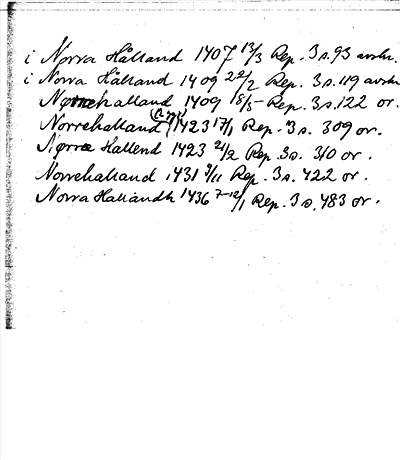 i Norra Hålland 1407 13/3 Rep. 3 s. 93 avskr.
i Norra Hålland 1409 22/2 Rep. 3 s. 119 avskr
Nørrehalland 1409 18/5 Rep. 3 s. 122 or.
Norrehalland 1423 17/1 Rep. 3 s. 309 or.
Nørra Hallend 1423 21/2 Rep. 3 s. 310 or.
Norrehalland 1431 9/11 Rep. 3 s. 422 or.
Norra Hallandh 1436 7-12/1 Rep. 3 s. 483 or.